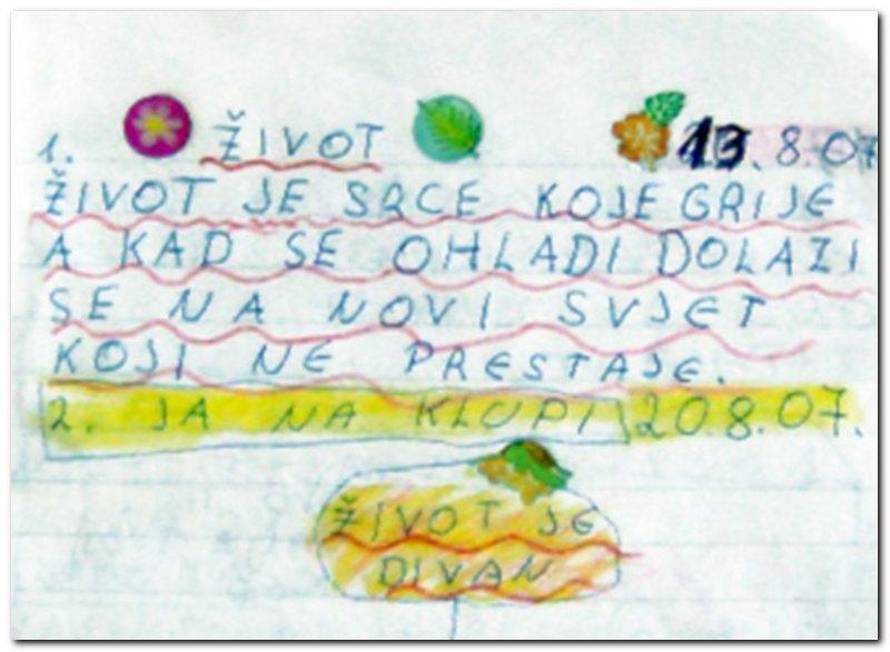 1. ŽIVOT 13.8.07
ŽIVOT JE SRCE KOJE GRIJE
A KAD SE OHLADI DOLAZI
SE NA NOVI SVJET
KOJI NE PRESTAJE.
2. JA NA KLUPI 20.8.07.
ŽIVOT JE
DIVAN